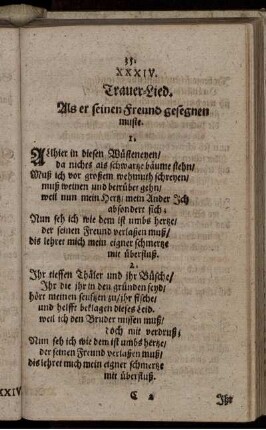 35.
XXXIV.
Trauer-Lied.
Als er seinen Freund gesegnen
muste.
1.
Allhier in diesen Wüsteneyen/
da nichts als schwartze bäume stehn/
Muß ich vor großem wehmuth schreyen/
muß weinen und betrübet gehn/
weil nun mein Hertz/ mein Ander Ich
absondert sich.
Nun seh ich wie dem ist umbs hertze/
der seinen Freund verlaßen muß/
dis lehret mich mein eigner schmertze
mit überfluß.
2.
Ihr tieffen Thäler und ihr Büsche/
Ihr die ihr in den gründen seyd/
hört meinen seufftzen zu/ ihr fische/
und helfft beklagen dieses leid.
weil ich den Bruder mißen muß/
doch mit verdruß.
Nun seh ich wie dem ist umbs hertze/
der seinen Freund verlaßen muß/
dis lehret mich mein eigner schmertze
mit überfluß.
C 2 Ihr
XXIV